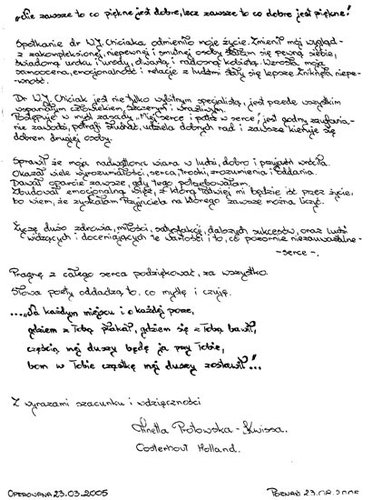 „Nie zawsze to co piękne jest dobre, lecz zawsze to co dobre jest piękne!"
Spotkanie dr W.J. Chiciaka odmieniło moje życie. Zmienił mój wygląd -
z zakompleksionej, niepewnej i smutnej osoby stałam się pewną siebie,
świadomą uroku i urody, otwartą i radosną kobietą. Wzrosła moja
samoocena, emocjonalność i relacje z ludźmi stały się lepsze. Znikneła niepe-
wność.
Dr W.J. Chiciak jest nie tylko wybitnym specjalistą, jest przede wszystkim
wspaniałym człowiekiem, szczerym i wrażliwym.
Postępuje w myśl zasady „Miej serce i patrz w serce", jest godny zaufania-
nie zawodzi, potrafi słuchać, udziela dobrych rad i zawsze kieruje się
dobrem drugiej osoby.
Sprawił że moja nadwątlona wiara w ludzi, dobro i przyjaźń wróciła.
Okazał wiele wyrozumiałości, serca, troski, zrozumienia i oddania.
Dawał oparcie zawsze, gdy tego potrzebowałam.
Zbudował emocjonalną więź, z którą łatwiej mi będzie iść przez życie,
bo wiem, że zyskałam Przyjaciela na którego zawsze można liczyć.
Życzę dużo zdrowia, miłości, satysfakcji, dalszych sukcesów, oraz ludzi
widzących i doceniających te wartości i to, co pozornie niezauważalne-
-serce-.
Pragnę z całego serca podziękować za wszystko.
Słowa poety oddadzą to, co myślę i czuję.
...„Na każdym miejscu i o każdej porze,
gdziem z Tobą płakał, gdziem się z Tobą bawił,
częścią mej duszy będę ja przy Tobie,
bom w Tobie cząstkę mej duszy zostawił!"...
Z wyrazami szacunku i wdzięczności
Oosterhout Holland.
Operowana 23.03.2005
Poznań